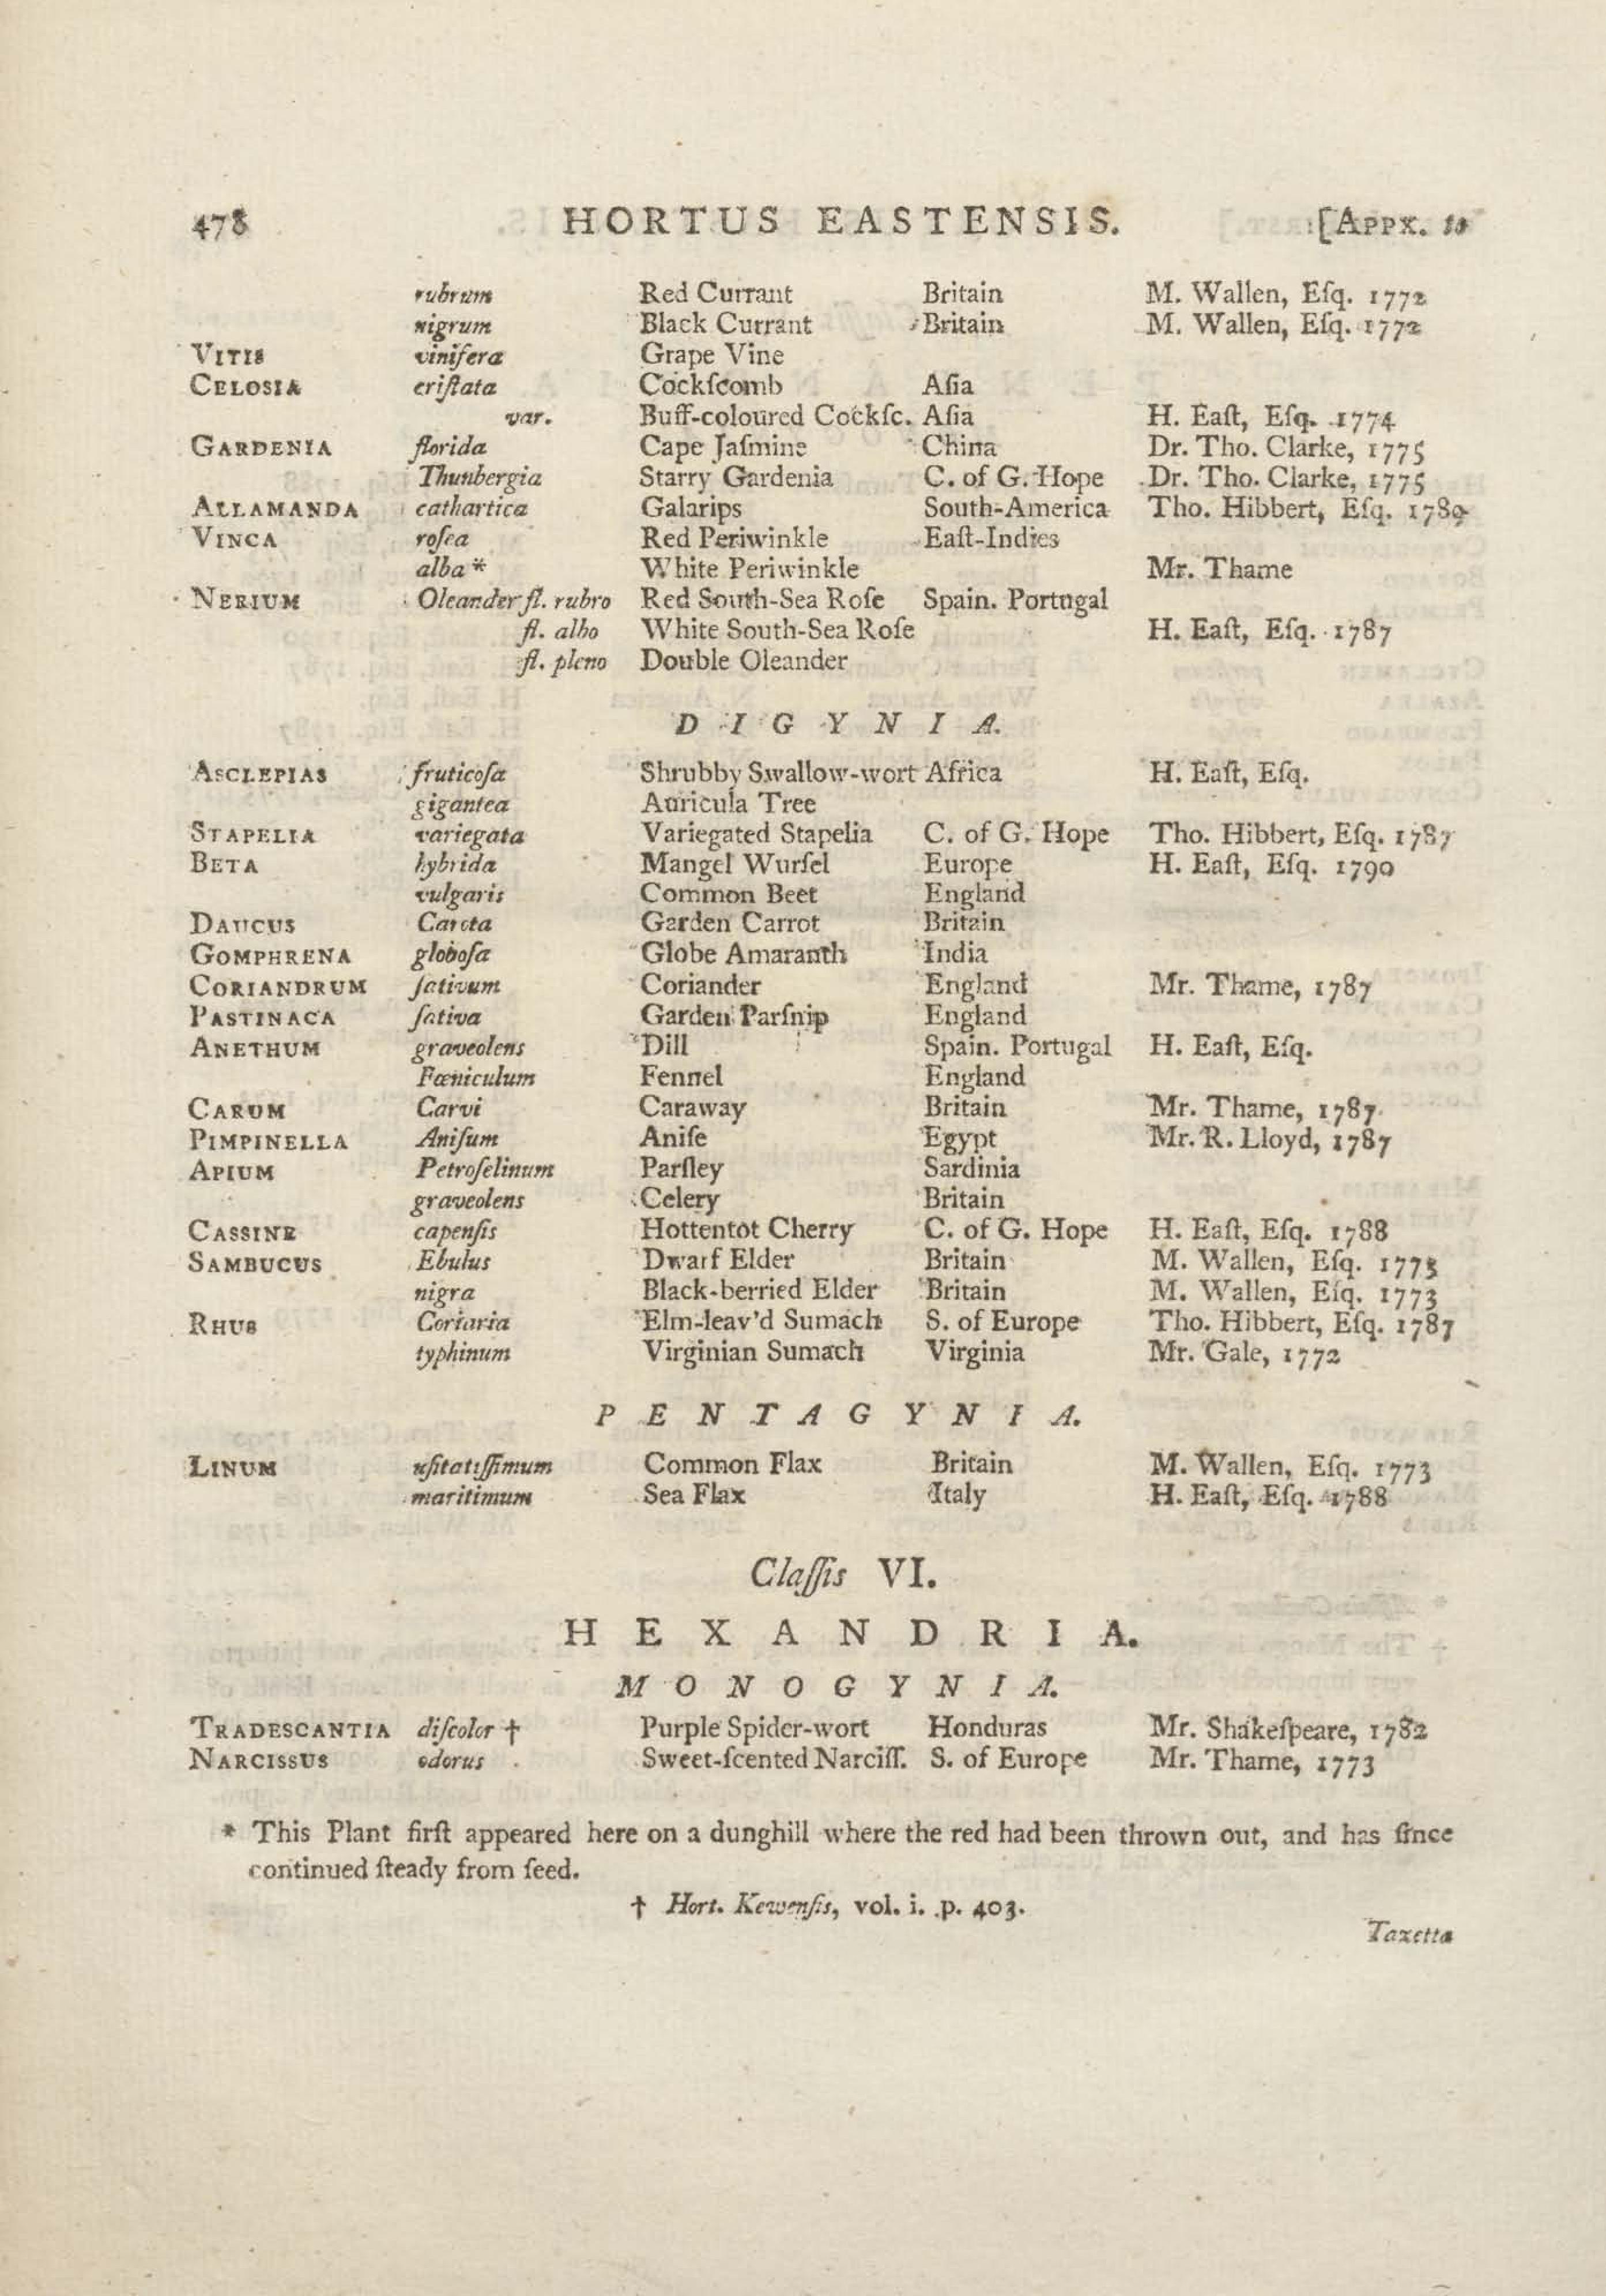 478 HORTUS EASTENSIS. [APPX.
rubrum Red Currant Britain M. Wallen, Eſq. 1772
nigrum Black Currant Britain M. Wallen, Eſq. 1772
VITIS vinifera Grape Vine
CELOSIA criſtata Cockſcomb Aſia
var. Buff-coloured Cockſc. Aſia H. Eaſt, Eſq. 1774
GARDENIA florida Cape Jaſmine China Dr. Tho. Clarke, 1775
Thunbergia Starry Gardenia C. of G. Hope Dr. Tho. Clarke, 1775
ALLAMANDA cathartica Galarips South-America Tho. Hibbert, Eſq. 1789
VINCA roſea Red Periwinkle Eaſt-Indies
alba * White Periwinkle Mr. Thame
NERIUM Oleander fl. rubro Red South-Sea Roſe Spain. Portugal
fl. albo White South-Sea Roſe H. Eaſt, Eſq. 1787
fl. pleno Double Oleander
DIGYNIA.
ASCLEPIAS fruticoſa Shrubby Swallow-wort Africa H. Eaſt, Eſq.
gigantea Auricula Tree
STAPELIA variegata Variegated Stapelia C. of G. Hope Tho. Hibbert, Eſq. 1787
BETA hybrida Mangel Wurſel Europe H. Eaſt, Eſq. 1790
vulgaris Common Beet England
DAUCUS Carota Garden Carrot Britain
GOMPHRENA globoſa Globe Amaranth India
CORIANDRUM ſativum Coriander England Mr. Thame, 1787
PASTINACA ſativa Garden Parſnip England
ANETHUM graveolens Dill Spain. Portugal H. Eaſt, Eſq.
Fœniculum Fennel England
CARUM Carvi Caraway Britain Mr. Thame, 1787
PIMPINELLA Aniſum Aniſe Egypt Mr. R. Lloyd, 1787
APIUM Petroſelinum Parſley Sardinia
graveolens Celery Britain
CASSINE capenſis Hottentot Cherry C. of G. Hope H. Eaſt, Eſq. 1788
SAMBUCUS Ebulus Dwarf Elder Britain M. Wallen, Eſq. 1773
nigra Black-berried Elder Britain M. Wallen, Eſq. 1773
RHUS Coriaria Elm-leav'd Sumach S. of Europe Tho. Hibbert, Eſq. 1787
typhinum Virginian Sumach Virginia Mr. Gale, 1772
PENTAGYNIA.
LINUM uſitatiſſimum Common Flax Britain M. Wallen, Eſq. 1773
maritimum Sea Flax Italy H. Eaſt, Eſq. 1788
Claſſis VI.
HEXANDRIA.
MONOGYNIA.
TRADESCANTIA diſcolor † Purple Spider-wort Honduras Mr. Shakeſpeare, 1782
NARCISSUS odorus Sweet-ſcented Narciſſ. S. of Europe Mr. Thame, 1773
* This Plant firſt appeared here on a dunghill where the red had been thrown out, and has ſince
continued ſteady from ſeed.
† Hort. Kewenſis, vol. i. p. 403.
Tazetta